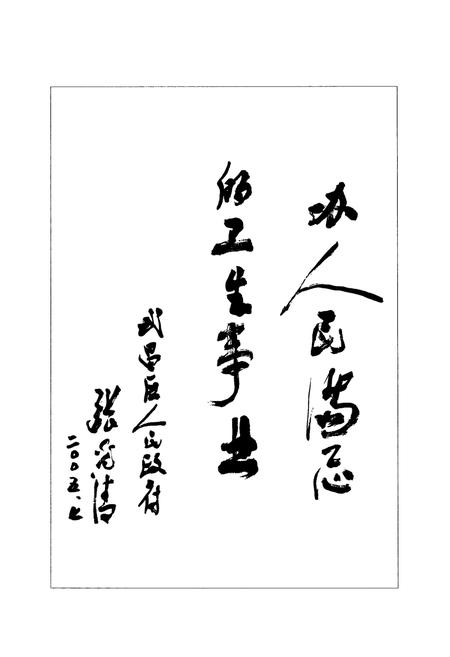 办人民满意
的卫生事业
武昌区人民政府
张光清
二〇〇五、七